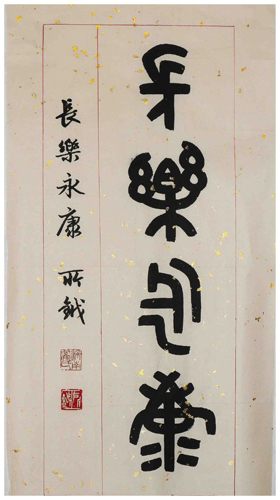 長樂永康
長樂永康 所鉞